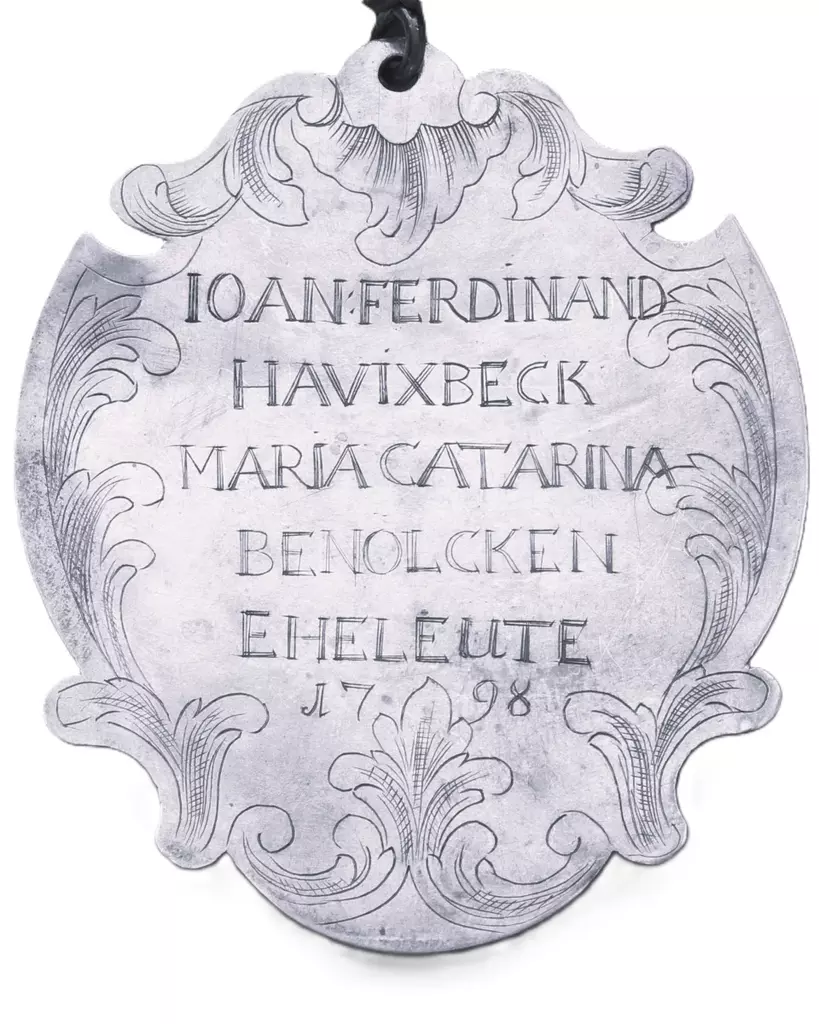 IOAN:FERDINAND
HAVIXBECK
MARIA CATARINA
BENOLCKEN
EHELEUTE
1798